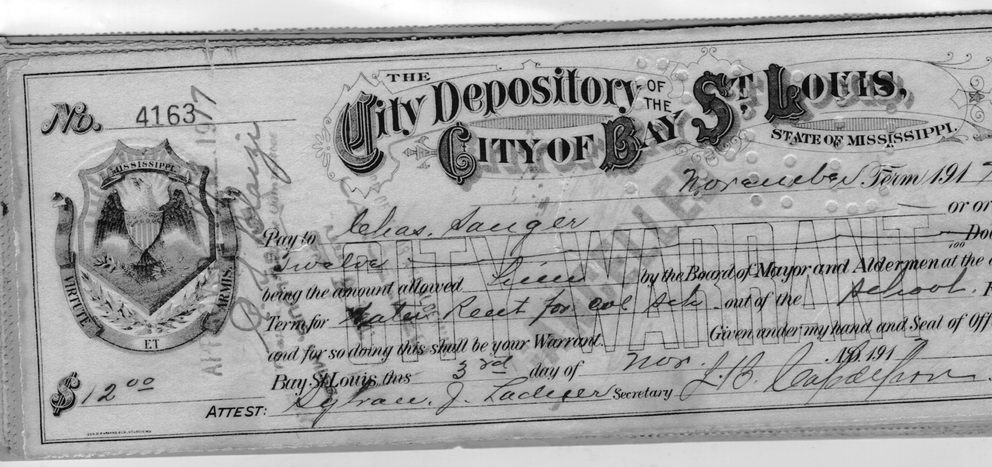 THE City Depository OF THE CITY OF BAY ST. LOUIS,
STATE OF MISSISSIPPI.
No. 4163
MISSISSIPPI
VIRTUTE ET ARMIS
November Term 1917
Pay to Chas. Sanger or or
Twelve Do
100
being the amount allowed by the Board of Mayor and Aldermen at the
Term for Water Rent for col Sch. out of the School F
and for so doing this shall be your Warrant. Given under my hand and Seal of Off
Bay St. Louis, this 3rd day of Nov. A.D. 191
$12.00
ATTEST: Sylvan J. Ladner Secretary
CITY WARRANT